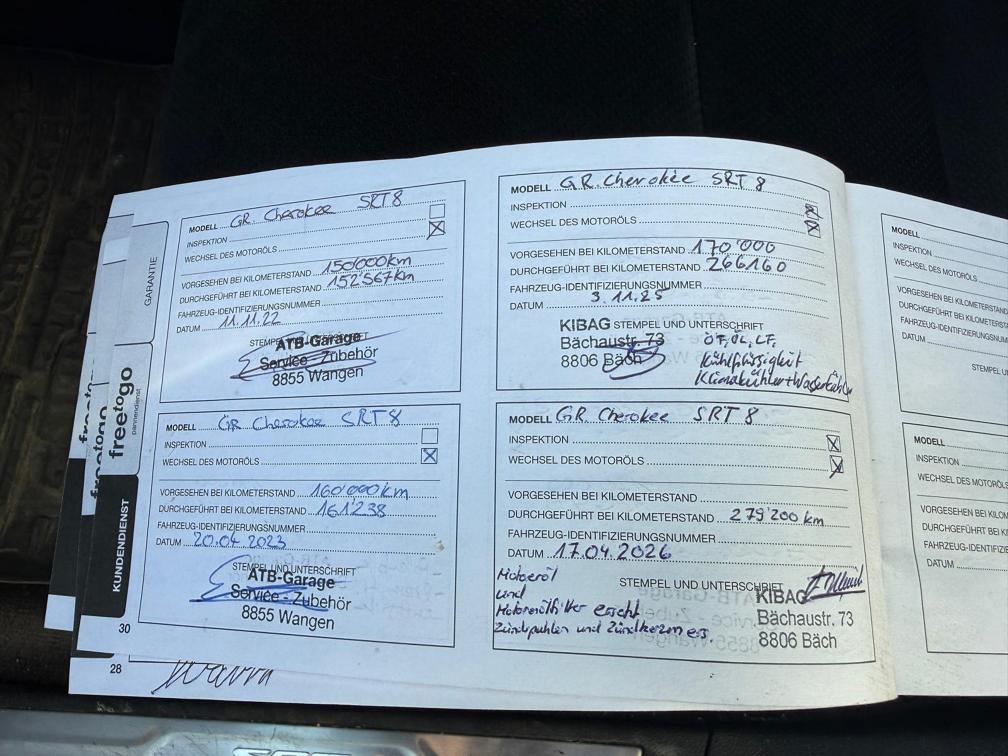 GARANTIE
freetogo
pannendienst
KUNDENDIENST
30
28
MODELL GR. Cherokee SRT8
INSPEKTION
WECHSEL DES MOTORÖLS
VORGESEHEN BEI KILOMETERSTAND 150'000km
DURCHGEFÜHRT BEI KILOMETERSTAND 152'567km
FAHRZEUG-IDENTIFIZIERUNGSNUMMER
DATUM 11.11.22
STEMPEL UND UNTERSCHRIFT
ATB-Garage
Service - Zubehör
8855 Wangen
MODELL GR Cherokee SRT8
INSPEKTION
WECHSEL DES MOTORÖLS
VORGESEHEN BEI KILOMETERSTAND 160'000km
DURCHGEFÜHRT BEI KILOMETERSTAND 161'238
FAHRZEUG-IDENTIFIZIERUNGSNUMMER
DATUM 20.04.2023
STEMPEL UND UNTERSCHRIFT
ATB-Garage
Service - Zubehör
8855 Wangen
MODELL GR. Cherokee SRT 8
INSPEKTION
WECHSEL DES MOTORÖLS
VORGESEHEN BEI KILOMETERSTAND 170'000
DURCHGEFÜHRT BEI KILOMETERSTAND 266160
FAHRZEUG-IDENTIFIZIERUNGSNUMMER
DATUM 3.11.25
KIBAG STEMPEL UND UNTERSCHRIFT
Bächaustr. 73
8806 Bäch
ÖF, ÖL, LF,
Kühlflüssigkeit
MODELL GR. Cherokee SRT 8
INSPEKTION
WECHSEL DES MOTORÖLS
VORGESEHEN BEI KILOMETERSTAND
DURCHGEFÜHRT BEI KILOMETERSTAND 279'200 km
FAHRZEUG-IDENTIFIZIERUNGSNUMMER
DATUM 17.04.2026
Motoröl
und
STEMPEL UND UNTERSCHRIFT
KIBAG
Bächaustr. 73
8806 Bäch
MODELL
INSPEKTION
WECHSEL DES MOTORÖLS
VORGESEHEN BEI KILOMETERSTAND
DURCHGEFÜHRT BEI KILOM
FAHRZEUG-IDENTIFIZIERU
DATUM
STEMPEL U
MODELL
INSPEKTION
WECHSEL DES MOTORÖLS
VORGESEHEN BEI KILOM
DURCHGEFÜHRT BEI KIL
FAHRZEUG-IDENTIFIZIE
DATUM